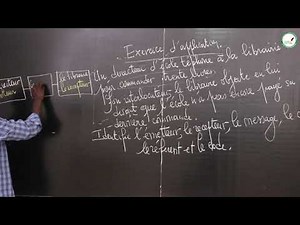 Exercice d'application
Un directeur d'école téléphone à la librairie
pour commander trente livres.
Son interlocuteur, le libraire objecte en lui
disant que l'école n'a pas encore payé sa
dernière commande.
Identifie l'émetteur, le récepteur, le message, le
le référent et le code.
le libraire
le récepteur